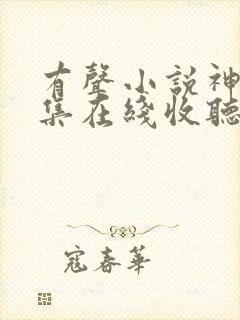 有聲小說神
集在綫收聽
寇春華